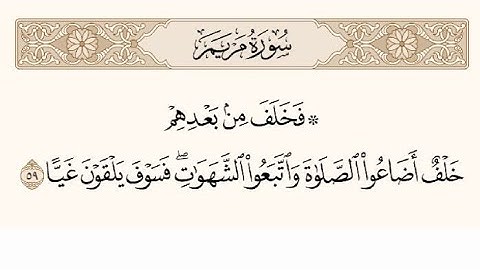 سُورَةُ مَرْيَمَ
۞ فَخَلَفَ مِنۢ بَعْدِهِمْ
خَلْفٌ أَضَاعُوا۟ ٱلصَّلَوٰةَ وَٱتَّبَعُوا۟ ٱلشَّهَوَٰتِ ۖ فَسَوْفَ يَلْقَوْنَ غَيًّا ٥٩